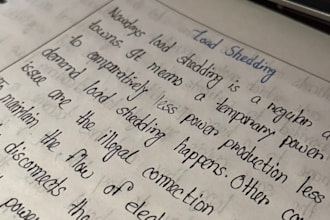 Load Shedding
Nowadays load shedding is a regular a
towns. It means a temporary power
to comparatively less power production less
demand load shedding happens. Other co
issue are the illegal connection
maintain the flow of elec
disconnects the
power